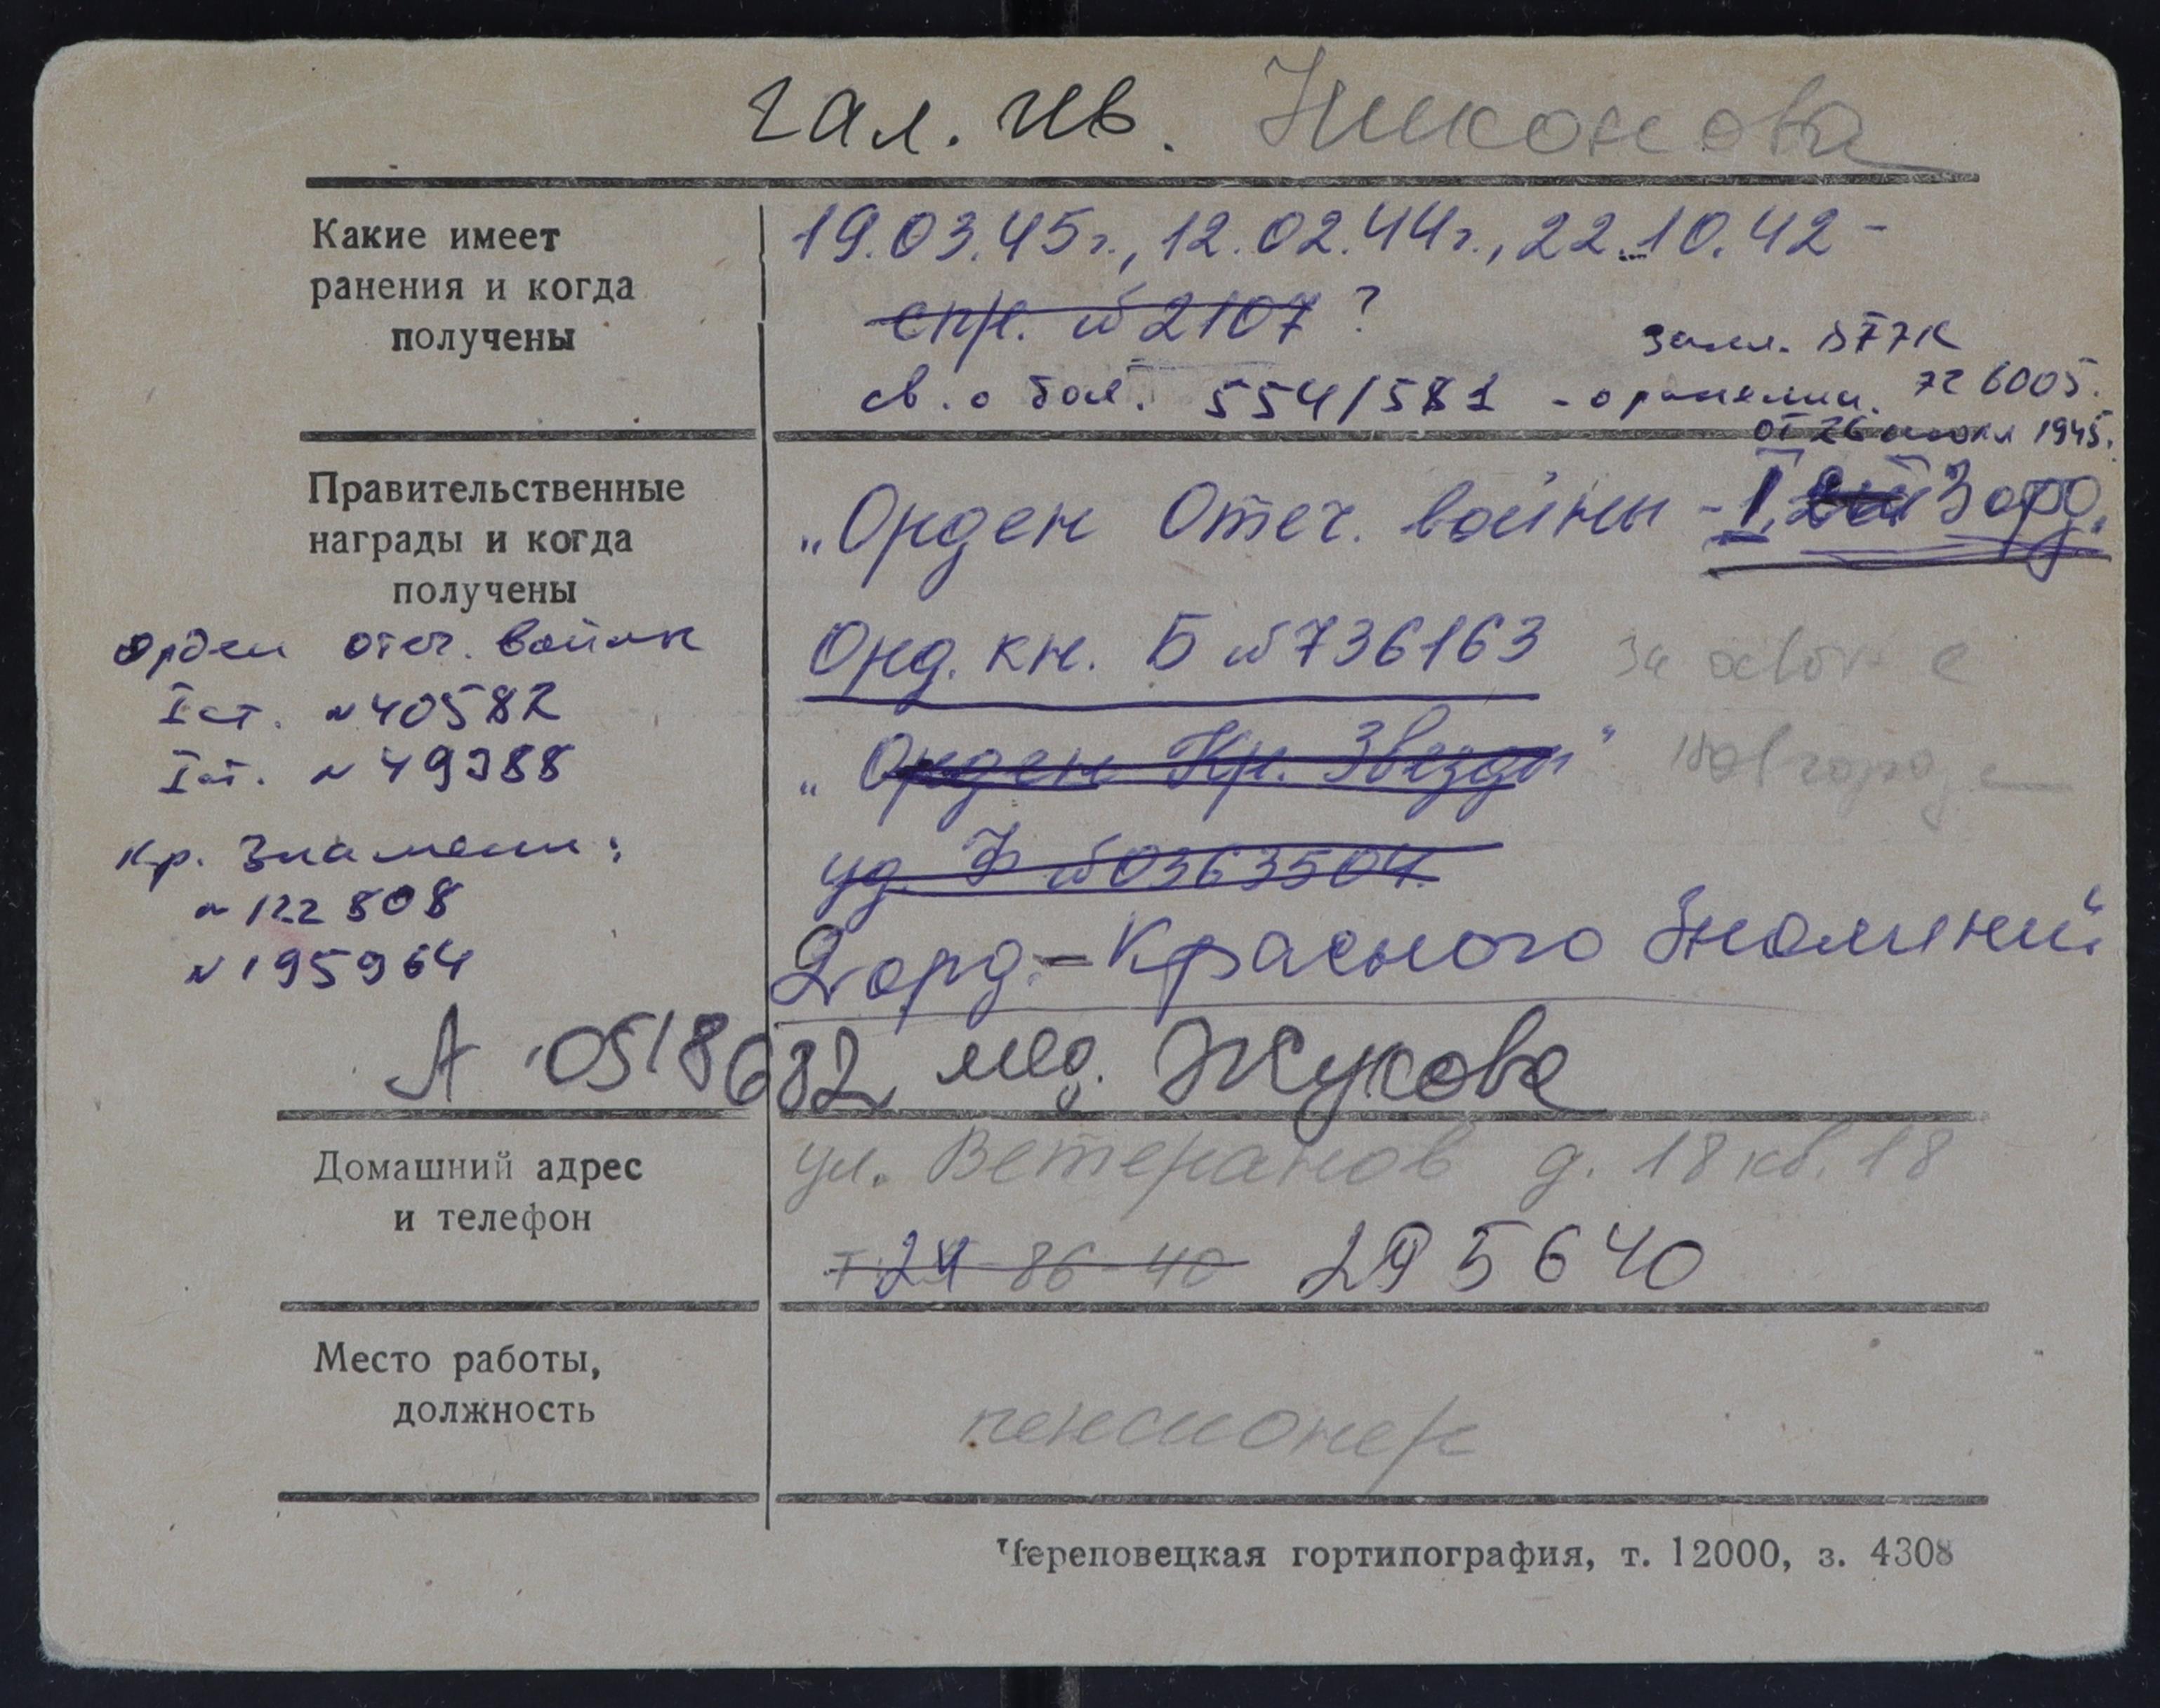 гал. ив. Никонова
Какие имеет
ранения и когда
получены
19.03.45г., 12.02.44г., 22.10.42 -
спр. № 2107 ?
св. о бол. 554/581 - о ранении.
726005.
от 26 июля 1945.
Правительственные
награды и когда
получены
„Орден Отеч. войны - I, 3 орд.
Орд. кн. Б № 736163
„Орден Кр. Звезды"
уд. Ф № 0363504
2 орд. - Красного Знамени"
Орден отеч. войны
I ст. N 40582
I ст. N 49388
Кр. Знамени:
N 122808
N 195964
А 0518682 мед. Жукова
Домашний адрес
и телефон
ул. Ветеранов д. 18 кв. 18
т. 24-86-40 295640
Место работы,
должность
пенсионер
Череповецкая гортипография, т. 12000, з. 4308